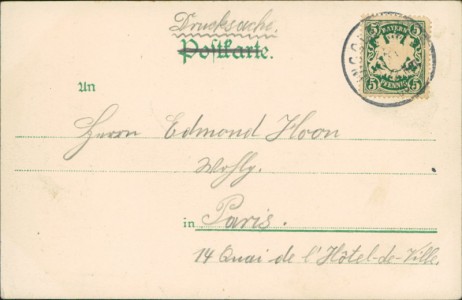 Drucksache.
Postkarte.
5 BAYERN 5
5 PFENNIG 5
An
Herrn Edmond Hoon
Wohlg.
in Paris.
14 Quai de l'Hôtel-de-Ville.